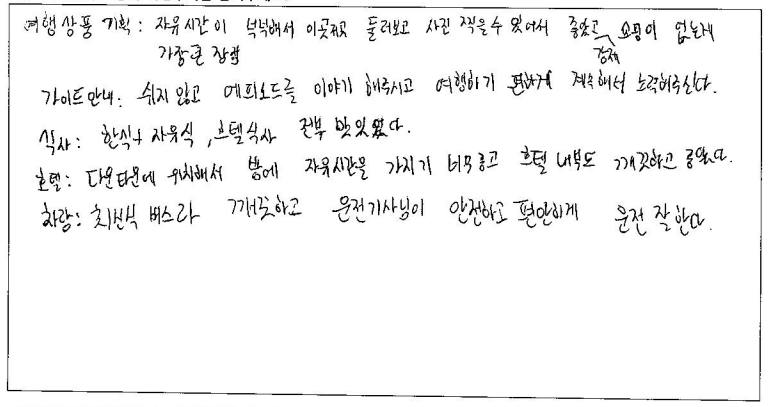 여행상품 기획 : 자유시간이 넉넉해서 이곳저곳 둘러보고 사진 찍을수 있어서 좋았고 강제 쇼핑이 없는게
가장큰 장점
가이드안내 : 쉬지 않고 에피소드를 이야기 해주시고 여행하기 편하게 계속해서 노력해주신다.
식사 : 한식+자유식, 호텔식사 전부 맛있었다.
호텔 : 다운타운에 위치해서 밤에 자유시간을 가지기 너무좋고 호텔 내부도 깨끗하고 좋았다.
차량 : 최신식 버스라 깨끗하고 운전기사님이 안전하고 편안하게 운전 잘한다.